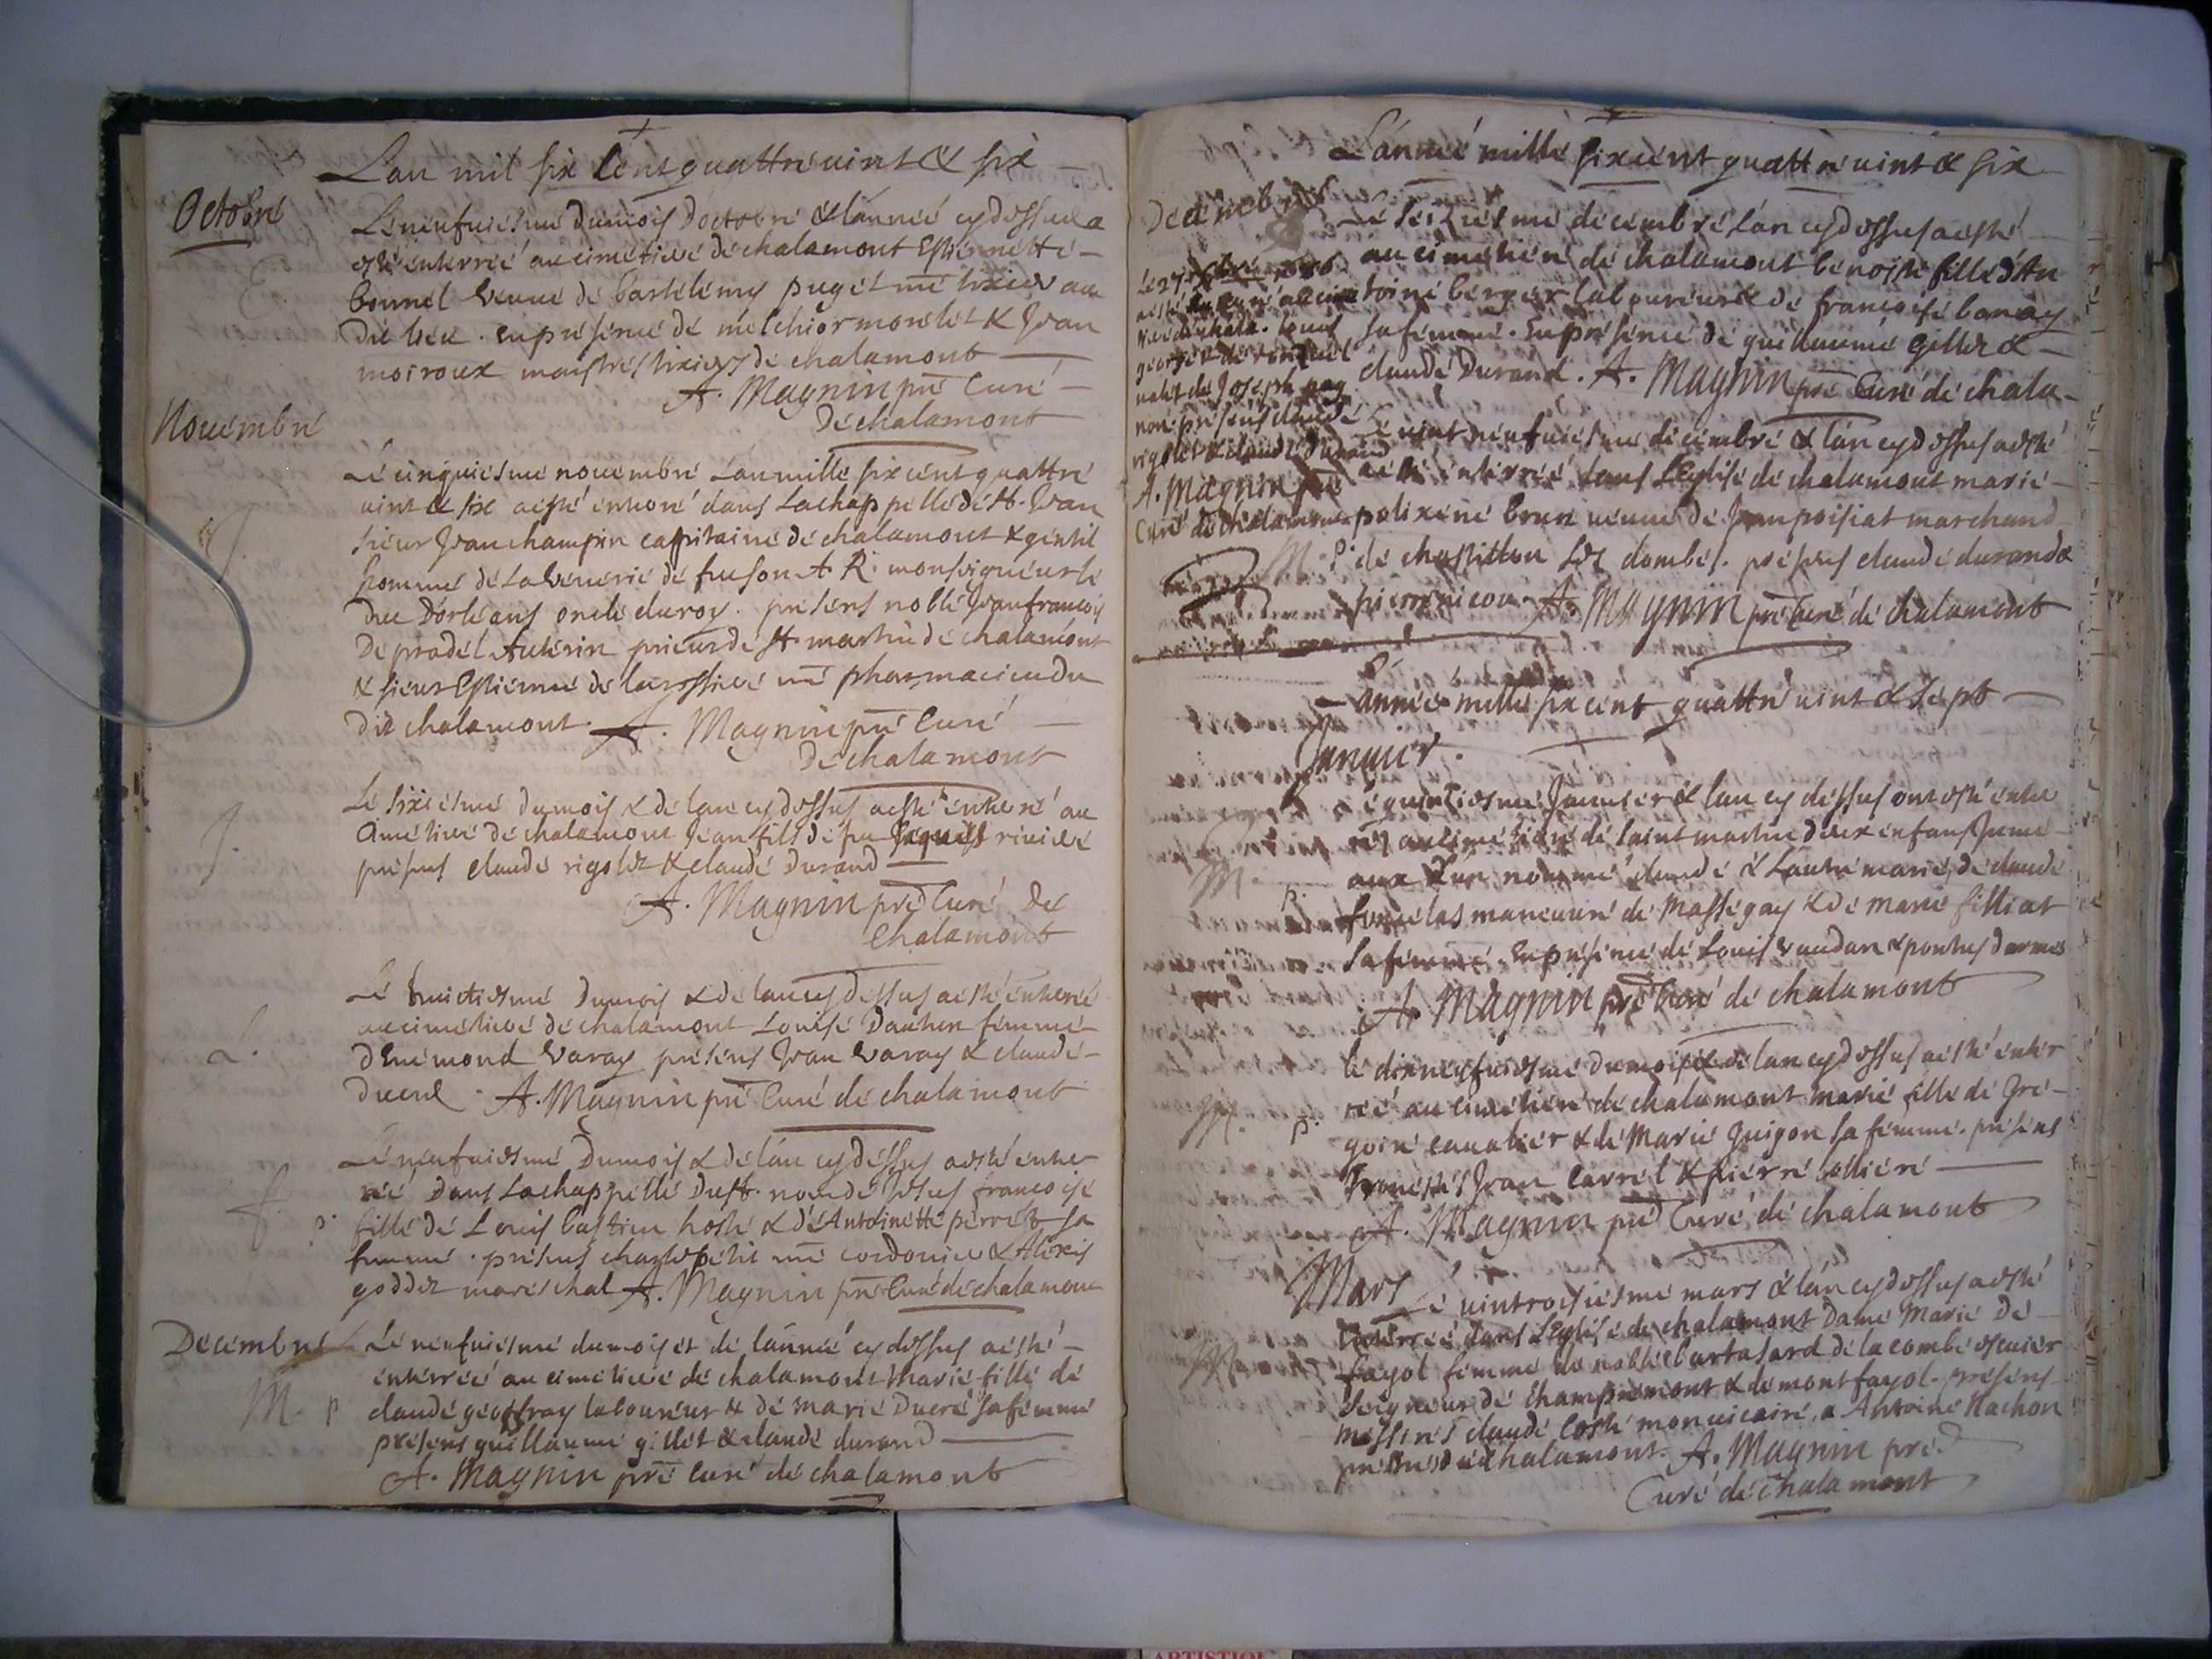 Lan mil six Cent quattre vint & six
Octobre
Le neufuiesme du mois doctobre & lannée cy dessus a
esté enterrée au cimetiere de chalamont Estiennette
bonnel veuue de bartelemy puget me tixier au
dit lieu. en presence de melchior morelet & Jean
moiroux maistres tixiers de chalamont
A. Magnin pre Curé
de chalamont
Nouembre
Le cinquiesme nouembre Lan mille six cent quattre
uint & six a esté enterré dans La chappelle de st. Jean
sieur Jean champin cappitaine de chalamont & gentil
homme de La venerie de feu son A R. monseigneur le
duc Dorleans oncle du roy. presens noble Jean francois
De pradel Autesin prieur de st martin de chalamont
& sieur Estienne de me pharmacien du
dit chalamont. A. Magnin pre Curé
de chalamont
J.
J.
Le sixiesme du mois & de lan cy dessus a esté enterré au
Cimetiere de chalamont Jean fils de feu Jaques riviere
presens claude rigolet & claude Durand
A. Magnin pre Curé de
chalamont
L.
Le huictiesme du mois & de lan cy dessus a esté enterrée
au cimetiere de chalamont Louise Dauhen femme
dEnemond varay presens Jean varay & claude
ducré. A. Magnin pre Curé de chalamont
Le neufuiesme Dumois & de lan cy dessus a esté enter
rée Dans La chappelle Du st. nom de Jesus francoise
f. p.
fille de Louis bastien hoste & de Antoinette perret sa
femme. presens charle petit me cordonier & Alexis
goddet mareschal A. Magnin pre Curé de chalamont
Decembre
Le neufuiesme du mois et de lannée cy dessus a esté
enterrée au cimetiere de chalamont Marie fille de
M. p
claude geoffray laboureur & de marie Ducré sa femme
presens guillaume gillet & claude durand
A. Magnin pre Curé de chalamont
L'année mille six cent quattre uint & six
Decembre
Le seiziesme decembre lan cy dessus a esté
au cimetiere de chalamont benoiste fille dAn
toine berger laboureur & de francoise banay
sa femme. En presence de guillaume Gillet &
claude Durand. A. Magnin pre Curé de chala-
Le 27 1686
a esté au cime
tiere de chala. Louis
george de
ualet de Joseph
non presens claude
rigolet & claude durand
A. Magnin pre
Curé de chalamont
Le uint neufuiesme decembre & lan cy dessus a esté
a esté enterrée dans L'Eglise de chalamont marie
polixene brun ueuue de Jean poisiat marchand
M. p.
de chastillon Les dombes. presens claude durand &
pierre nicou. A. Magnin pre Curé de chalamont
Lannée mille six cent quattre uint & sept
Januier.
Le quinziesme Januier & lan cy dessus ont esté enter
rés au cimetiere de saint martin deux enfans Jume
M. p.
aux L'un nommé claude & Lautre marie, de claude
maneuure de Massegay & de marie filliat
sa femme. En presence de Louis vaudan & pontus darmes
A. Magnin pre Curé de chalamont
le dixneufuiesme du mois & de lan cy dessus a esté enter
M. p.
rée au cimetiere de chalamont marie fille de Gre-
goire caualier & de Marie Guigon sa femme. presens
honestes Jean Carrel & pierre
A. Magnin pre Curé de chalamont
Mars
Le uintroisiesme mars & lan cy dessus a esté
Enterrée dans L'Eglise de chalamont Dame Marie De
M.
fayol femme de noble de la combe escuier
seigneur de champremont & de montfayol. presens
messires claude Coste mon uicaire, & Antoine Nachon
prestres de chalamont. A. Magnin pre
Curé de chalamont